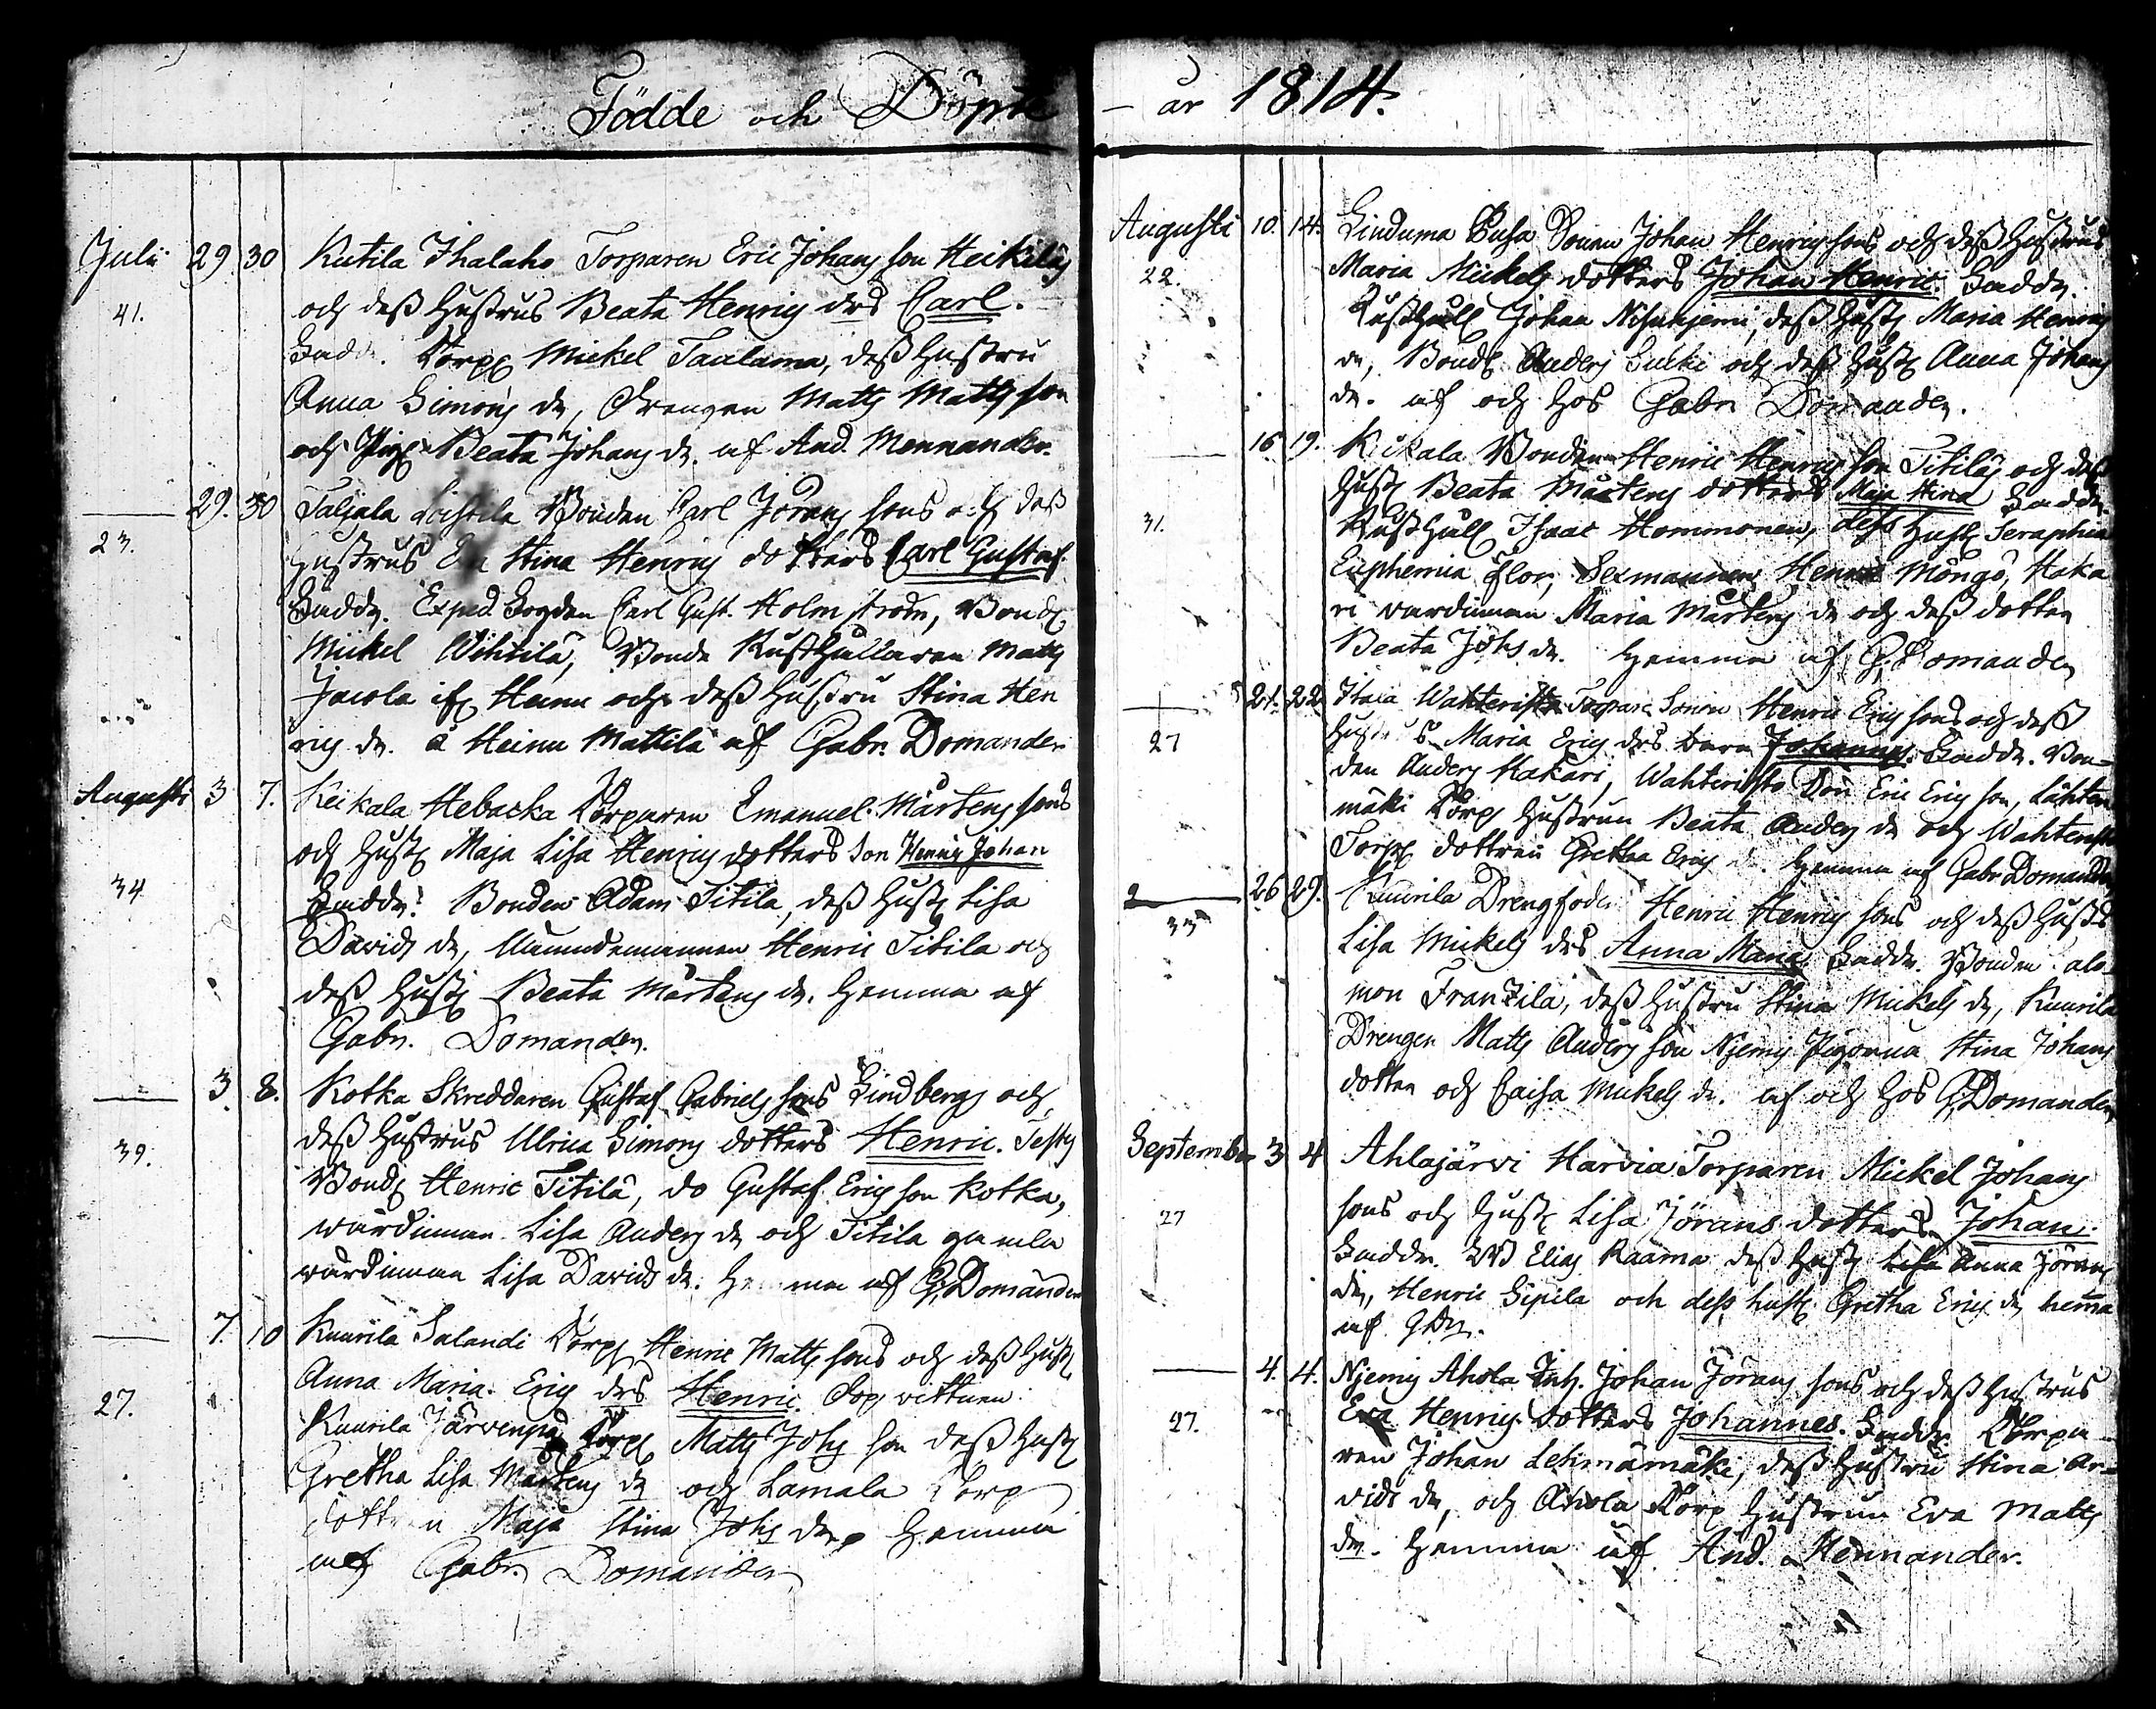 Födde och Döpte
Julii 29 30 Kutila Ihalaho Torparen Eric Johans son Heikilas
41. och dess Hustrus Beata Henrics drs Carl.
Fadd. Torp. Mickel Taalama, dess Hustru
Anna Simons dr, Drengen Matts Matts son
och Pig. Beata Johans dr. af And. Mennander.
29. 30 Taljala Bonden Carl Jörans sons och dess
23. Hustrus Eva Stina Henrics dotters Carl Gustaf.
Faddr. Exped. Fogden Carl Gust. Holmström, Bond.
Mickel Wihtilä, Bonde Rusthållaren Matts
Jacola och dess Hustru Stina Hen
rics dr. å Heinu Mattila af Gabr. Domander
Augusti 3 7. Keikala Hebacka Torparen Emanuel Mårtens sons
och Hust. Maja Lisa Henrics dotters son Henric Johan
34. Faddr. Bonden Adam Titila, dess Hust. Lisa
Davids dr, Nämndemannen Henric Titila och
dess Hust. Beata Mårtens dr. Hemma af
Gabr. Domander.
3. 8. Kotka Skreddaren Gustaf Gabriels sons Lindbergs och
39. dess Hustrus Ulrica Simons dotters Henric. Test.
Bond. Henric Titilä, do Gustaf Erics son Kotka,
wärdinnan Lisa Anders dr och Titila gamla
wärdinnan Lisa Davids dr. Hemma af G. Domander
7. 10 Kuurila Salandi Torp. Henric Matts sons och dess Hust.
27. Anna Maria Erics drs Henric. Dop vittnen
Kuurila Järvenpä Torp. Matts Johs son dess Hust.
Gretha Lisa Mårtens dr och Lamala Torp
dottren Maja Stina Johs dr. Hemma
af Gabr. Domander
– år 1814.
Augusti 10. 14. Sonen Johan Henrics sons och dess Hustrus
22. Maria Mickels dotters Johan Henric. Faddr.
Rusthåll. Johan dess Hust. Maria Henrics
dr, Bond. Anders och dess Hust. Anna Johans
dr. af och hos Gabr. Domander.
16 19. Keikala Bonden Henric Henrics son Titiläs och dess
Hust. Beata Mårtens dotters Maja Stina Faddr.
31. Rusthåll. Isaac Hommonen, dess Hust. Seraphia
Euphemia Flor, Sexmannen Henric Mongo, Haka
ri wärdinnan Maria Mårtens dr och dess dotter
Beata Johs dr. Hemma af G. Domander
21. 22 Torpare Sonen Henric Erics sons och dess
27 Hustrus Maria Erics drs barn Johannes. Faddr. Bon-
den Anders Hakari, Wahteristo Eric Erics son, Lähten
mäki Torp. Hustrun Beata Anders dr och Wahteristo
Torp. dottren Gretha Erics dr. Hemma af Gabr Domander
26 29. Kuurila Henric Henrics sons och dess Hustrus
33 Lisa Mickels drs Anna Maria. Faddr. Bonden
mon Frantzila, dess Hustru Stina Mickels dr, Kuurila
Drengen Matts Anders son Njemis Pigorna Stina Johans
dotter och Caisa Mickels dr. af och hos G. Domander
September 3 4 Ahlajärvi Harvia Torparen Mickel Johans
27 sons och Hust. Lisa Jörans dotters Johan.
Faddr. Elias Raama dess Hust. Lisa Anna Jörans
dr, Henric Sipila och dess hust. Gretha Erics dr, hemma
af GDr.
4. 4. Njemis Ahola Inh. Johan Jörans sons och dess Hustrus
27. Eva Henrics dotters Johannes. Faddr. Torpa
ren Johan Lehmämäki, dess Hustru Stina Ar-
vids dr, och Ahola Torp Hustrun Eva Matts
dr. Hemma af And. Mennander.